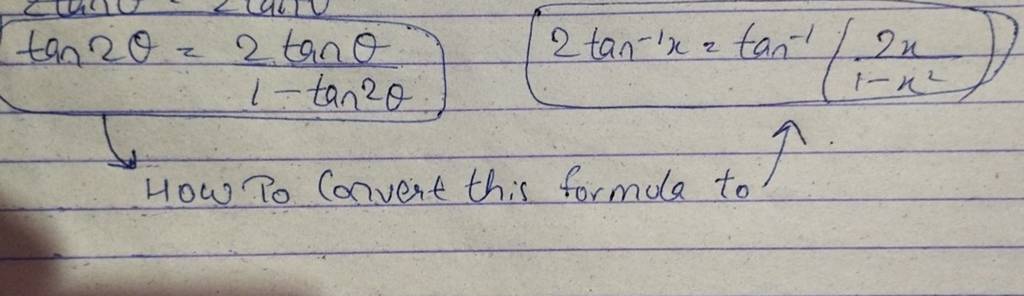 tan2θ = 2 tanθ
1 - tan2θ
2 tan⁻¹x = tan⁻¹ ( 2x
1-x² )
How To Convert this formula to